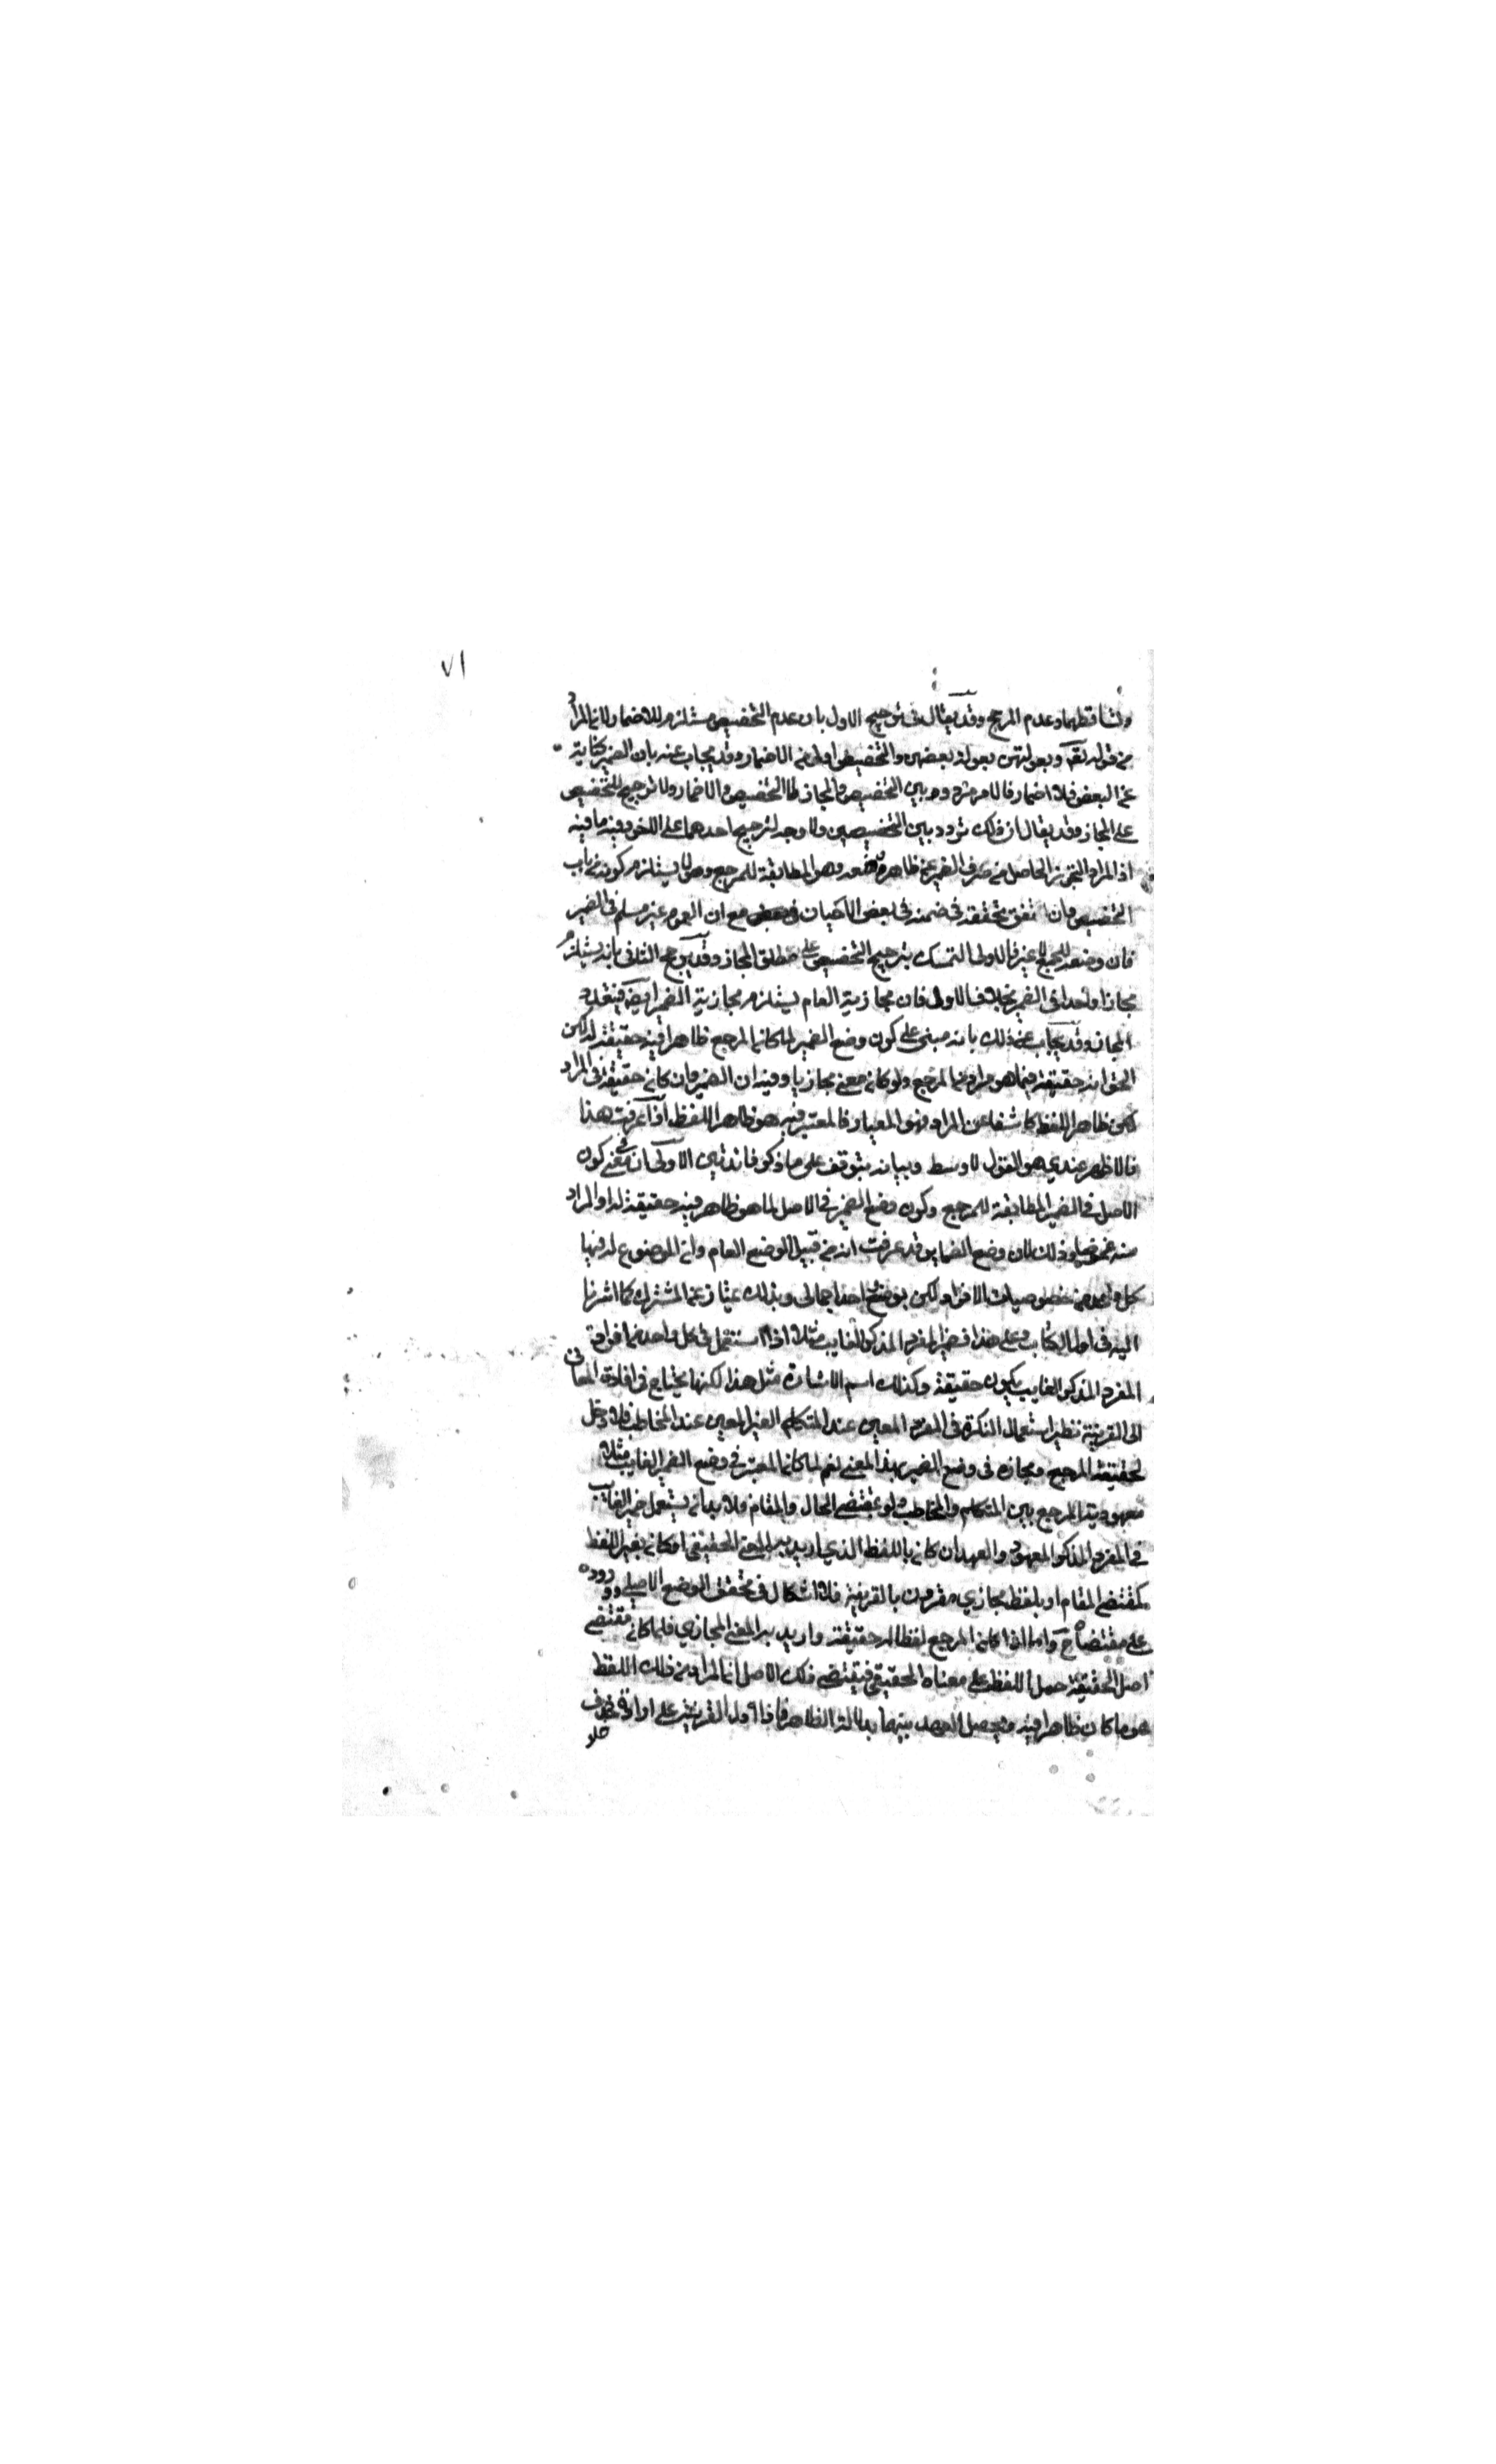 ٧١
وتساقطهما وعدم المرجح وقد يقال في ترجيح الاول بان عدم التخصيص مستلزم للاضمار لان المراد
من قوله تعـ وبعولتهن بعولة بعضهن والتخصيص اولى من الاضمار وقد يجاب عنه بان الضمير كناية
عن البعض فلا اضمار فالامر مردد بين التخصيص والمجاز لا التخصيص والاضمار ولا ترجيح للتخصيص
على المجاز وقد يقال ان ذلك تردد بين التخصيصين ولا وجه لترجيح احدهما على الاخر وفيه ما فيه
اذ المراد التجوز الحاصل من صرف الضمير عن ظاهر وضعه وهو المطابقة للمرجع وهو لا يستلزم كونه من باب
التخصيص وان اتفق تحققه في ضمنه في بعض الاحيان مع ان العموم غير مسلم في الضمير
فان وضعه للجميع لا غير فالاولى التمسك بترجيح التخصيص على مطلق المجاز وقد يرجح الثاني بانه يستلزم
مجازا واحدا في الضمير بخلاف الاول فان مجازية العام يستلزم مجازية الضمير ايضا فيتعدد
المجاز وقد يجاب عن ذلك بانه مبني على كون وضع الضمير لما كان المرجع ظاهرا فيه حقيقة له لكن
الحق انه حقيقة فيما هو مراد من المرجع ولو كان معنى مجازيا وفيه ان الضمير وان كان حقيقة في المراد
لكن ظاهر اللفظ كاشفا عن المراد فهو المعيار فالمعتبر فيه هو ظاهر اللفظ اذا عرفت هذا
فالاظهر عندي هو القول الاوسط وبيانه يتوقف على ما ذكر فائدتين الاولى ان معنى كون
الاصل في الضمير المطابقة للمرجع وكون وضع الضمير في الاصل لما هو ظاهر فيه حقيقة له او المراد
منه وذلك لان وضع الضماير قد عرفت انه من قبيل الوضع العام وان الموضوع له فيها
كل واحد من خصوصيات الافراد لكن بوضع واحد اجمالي وبذلك يمتاز عن المشترك كما اشرنا
اليه في اوايل الكتاب وعلى هذا فضمير المفرد المذكر الغايب مثلا اذا استعمل في كل واحد من افراد
المفرد المذكر الغايب يكون حقيقة وكذلك اسم الاشارة مثل هذا لكنها يحتاج في افادة المعاني
الى القرينة نظير استعمال النكرة في الفرد المعين عند المتكلم الغير المعين عند المخاطب فلا دخل
لحقيقة المرجع ومجازه في وضع الضمير بهذا المعنى نعم لما كان المعتبر في وضع الضمير الغايب مثلا
معهودية المرجع بين المتكلم والمخاطب ولو بمقتضى الحال والمقام فلا بد ان يستعمل ضمير الغايب
في المفرد المذكر المعهود والعهد ان كان باللفظ الذي اريد به المعنى الحقيقي او كان بغير اللفظ
كمقتضى المقام او بلفظ مجازي مقرون بالقرينة فلا اشكال في تحقق الوضع الاصلي ووروده
على مقتضاه ح واما اذا كان المرجع لفظا له حقيقة واريد به المعنى المجازي فلما كان مقتضى
اصل الحقيقة حمل اللفظ على معناه الحقيقي فيقتضي ذلك الاصل ان المراد من ذلك اللفظ
هو ما كان ظاهرا فيه فيحصل العهد بينهما بدلالة الظاهر فاذا دل القرينة على ارادة خلاف